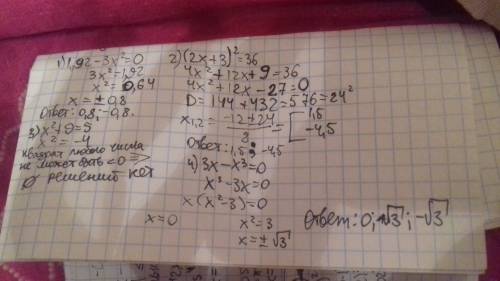 1) 1,92 - 3x² = 0
3x² = 1,92
x² = 0,64
x = ± 0,8
Ответ: 0,8; -0,8.
3) x² + 9 = 5
x² = -4
квадрат любого числа
не может быть < 0 =>
∅ решений нет
2) (2x + 3)² = 36
4x² + 12x + 9 = 36
4x² + 12x - 27 = 0
D = 144 + 432 = 576 = 24²
x₁,₂ = (-12 ± 24)/8 = [1,5
-4,5
Ответ: 1,5; -4,5
4) 3x - x³ = 0
x³ - 3x = 0
x(x² - 3) = 0
x = 0 x² = 3
x = ± √3
Ответ: 0; √3; -√3